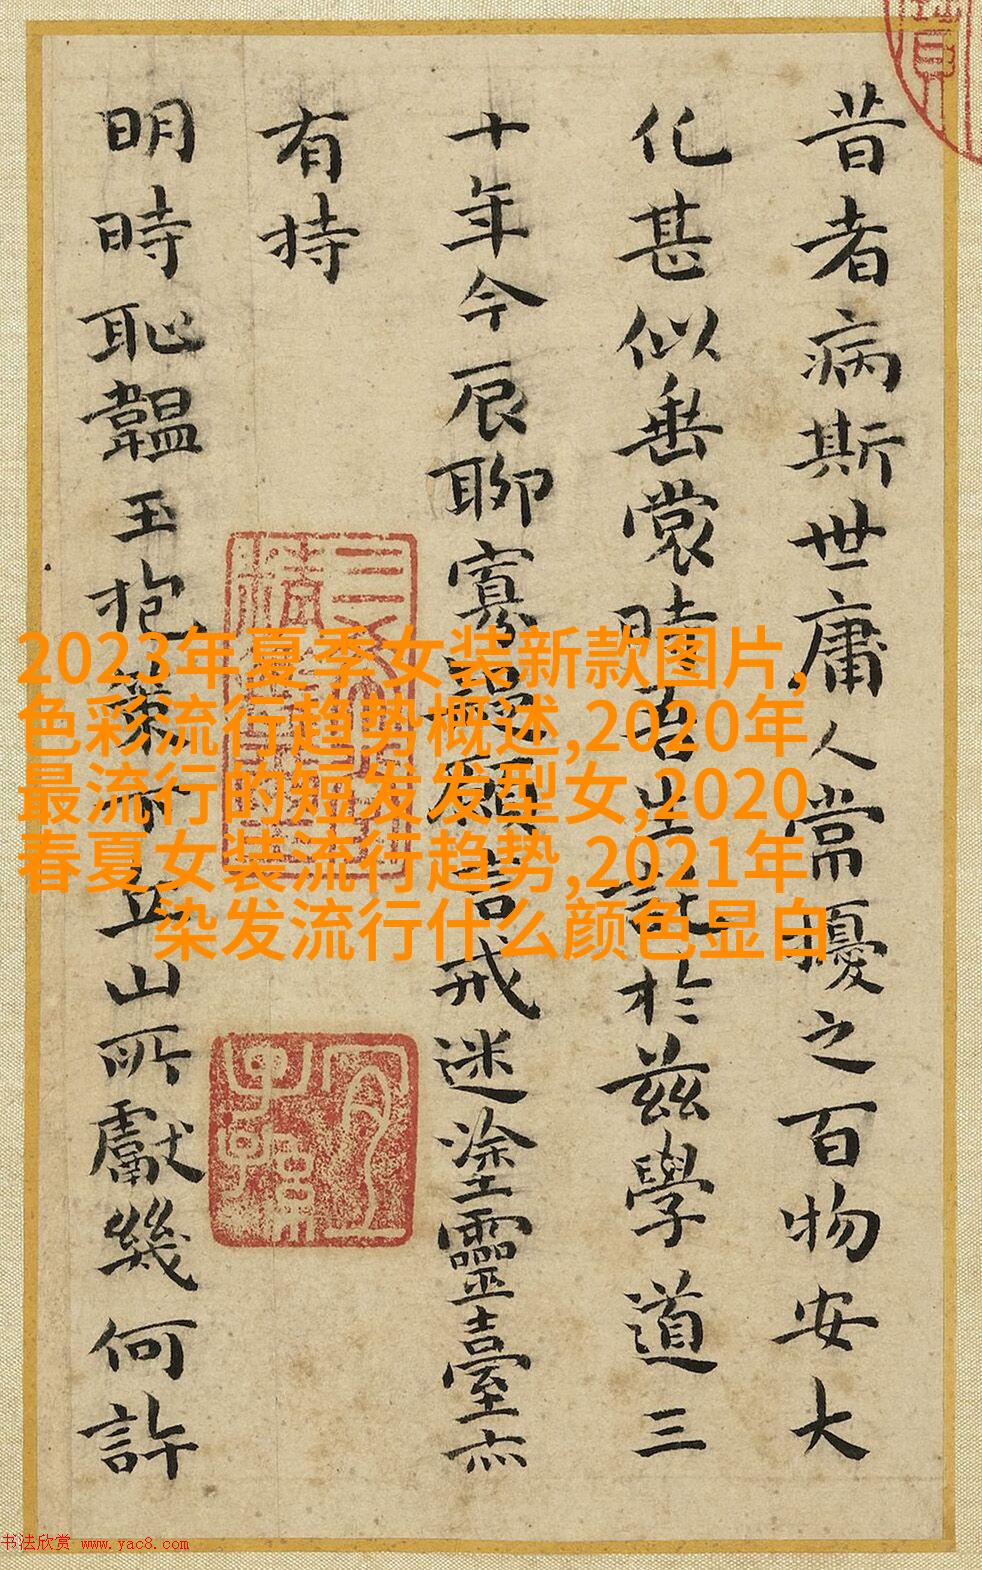 昔者病斯世庸人常擾之百物安大
化甚似垂裳時吾生託於茲學道三
十年今辰聊寡願言戒迷塗靈臺亦
有持
明時恥韞玉抱山所獻幾何許
2023年夏季女装新款图片,
色彩流行趋势概述,2020年
最流行的短发发型女,2020
春夏女装流行趋势,2021年
染发流行什么颜色显白
书法欣赏 www.yac8.com